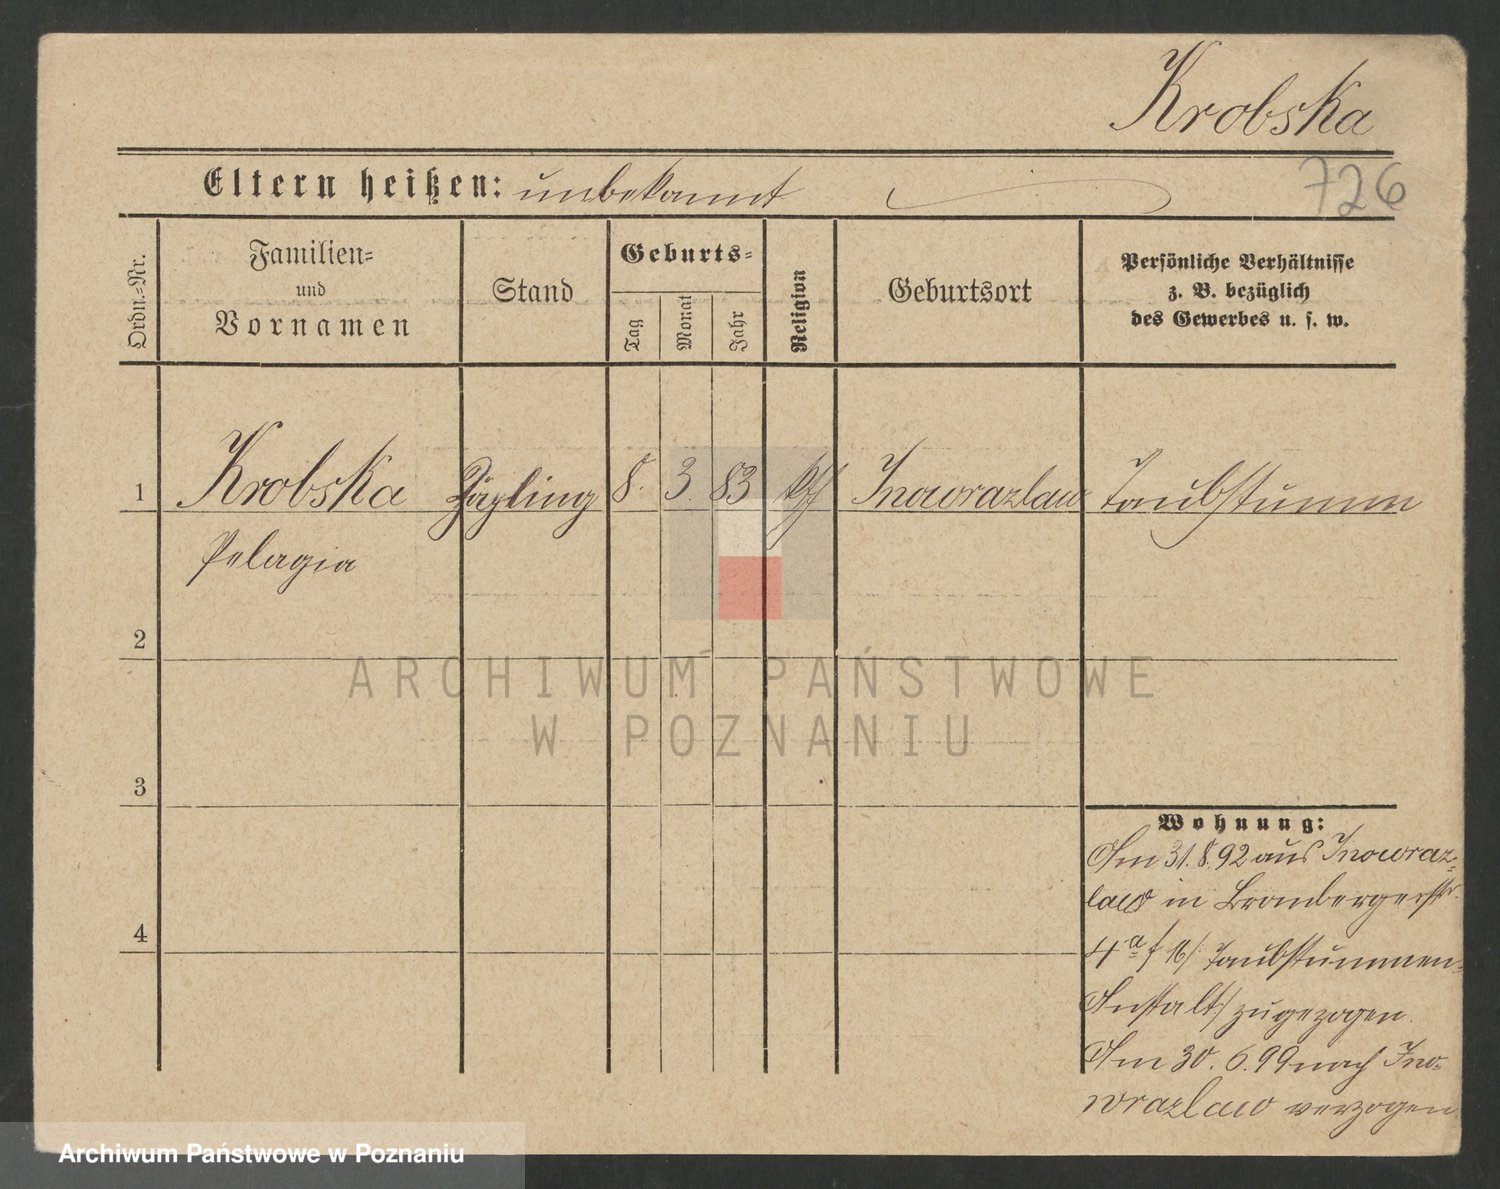 Krobska
Eltern heißen: unbekannt
726
Ordn.-Nr.
Familien-
und
Vornamen
Stand
Geburts-
Tag
Monat
Jahr
Religion
Geburtsort
Persönliche Verhältnisse
z. B. bezüglich
des Gewerbes u. s. w.
1 Krobska Zögling 8. 3. 83 Inowrazlaw Taubstumm
Pelagia
2
3
4
ARCHIWUM PAŃSTWOWE
W POZNANIU
Wohnung:
Am 31.8.92 aus Inowraz-
law in Brombergerstr.
4a Taubstummen-
Anstalt/ zugezogen.
Am 30. 6. 99 nach Ino-
wrazlaw verzogen
Archiwum Państwowe w Poznaniu